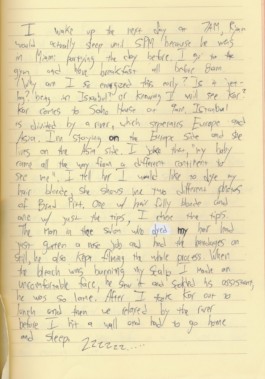 I wake up the next day on 7AM,
would actually sleep until 5PM because he was
in Miami partying the day before. I go to the
gym and have breakfast all before 8am
"Why am I so energized this early? Is it
being in Istanbul? Or knowing I will see Kar"
Kar comes to Soho House at 9am. Istanbul
is divided by a river, which separates Europe and
Asia. I'm staying on the Europe side and she
lives on the Asia side. I joke that, "my baby
came all the way from a different continent to
see me". I tell her I would like to dye my
hair blonde, she shows me two different photos
of Brad Pitt. One w/ hair fully blonde and
one w/ just the tips, I chose the tips.
The man in the salon who dyed my hair had
just gotten a nose job and had the bandages on
still, he also kept filming the whole process. When
the bleach was burning my scalp I made an
uncomfortable face, he saw it and scolded his assistant,
he was so lame. After I took Kar out to
lunch and then we relaxed by the river
before I hit a wall and had to go home
and sleep. Zzzzzz....